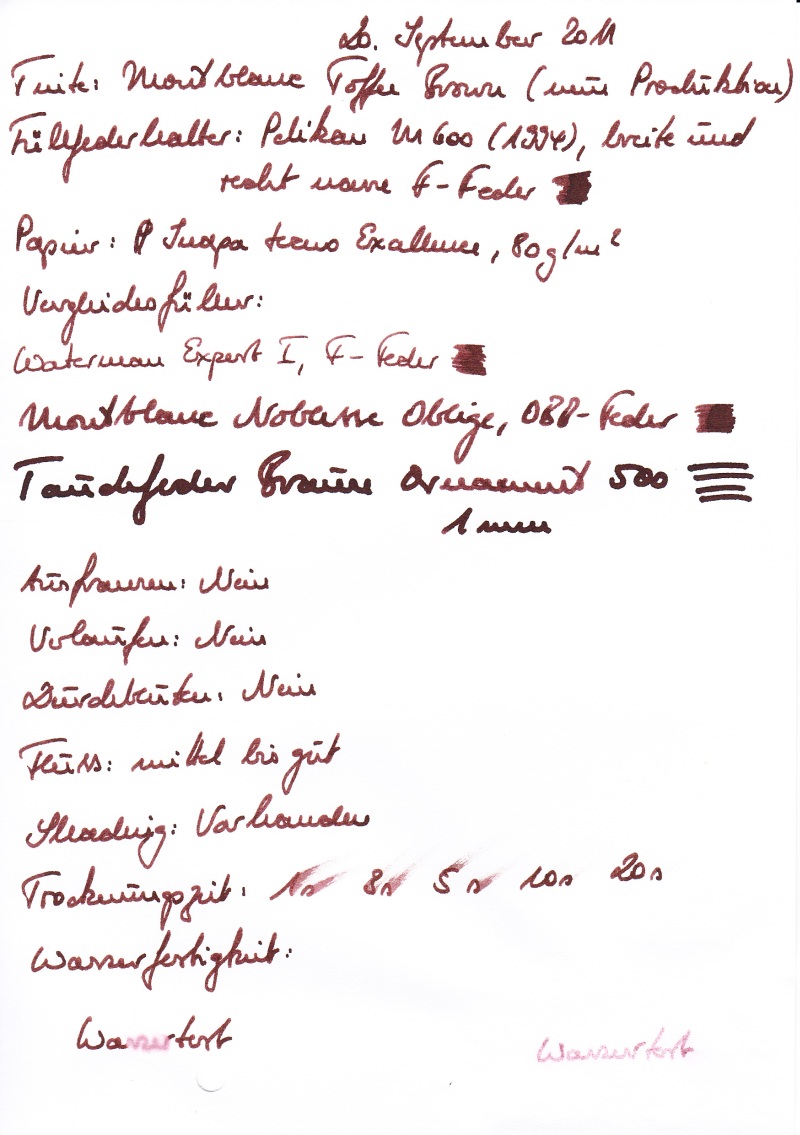 20. September 2011
Tinte: Montblanc Toffee Brown (neue Produktion)
Füllfederhalter: Pelikan M600 (1994), breite und
recht nasse F-Feder
Papier: Inapa tecno Excellence, 80g/m²
Vergleichsfüller:
Waterman Expert I, F-Feder
Montblanc Noblesse Oblige, OBB-Feder
Tauchfeder Brause Ornament 500
1 mm
Ausfransen: Nein
Verlaufen: Nein
Durchbluten: Nein
Fluss: mittel bis gut
Shading: Vorhanden
Trocknungszeit: 1s 3s 5s 10s 20s
Wasserfestigkeit:
Wassertest
Wassertest